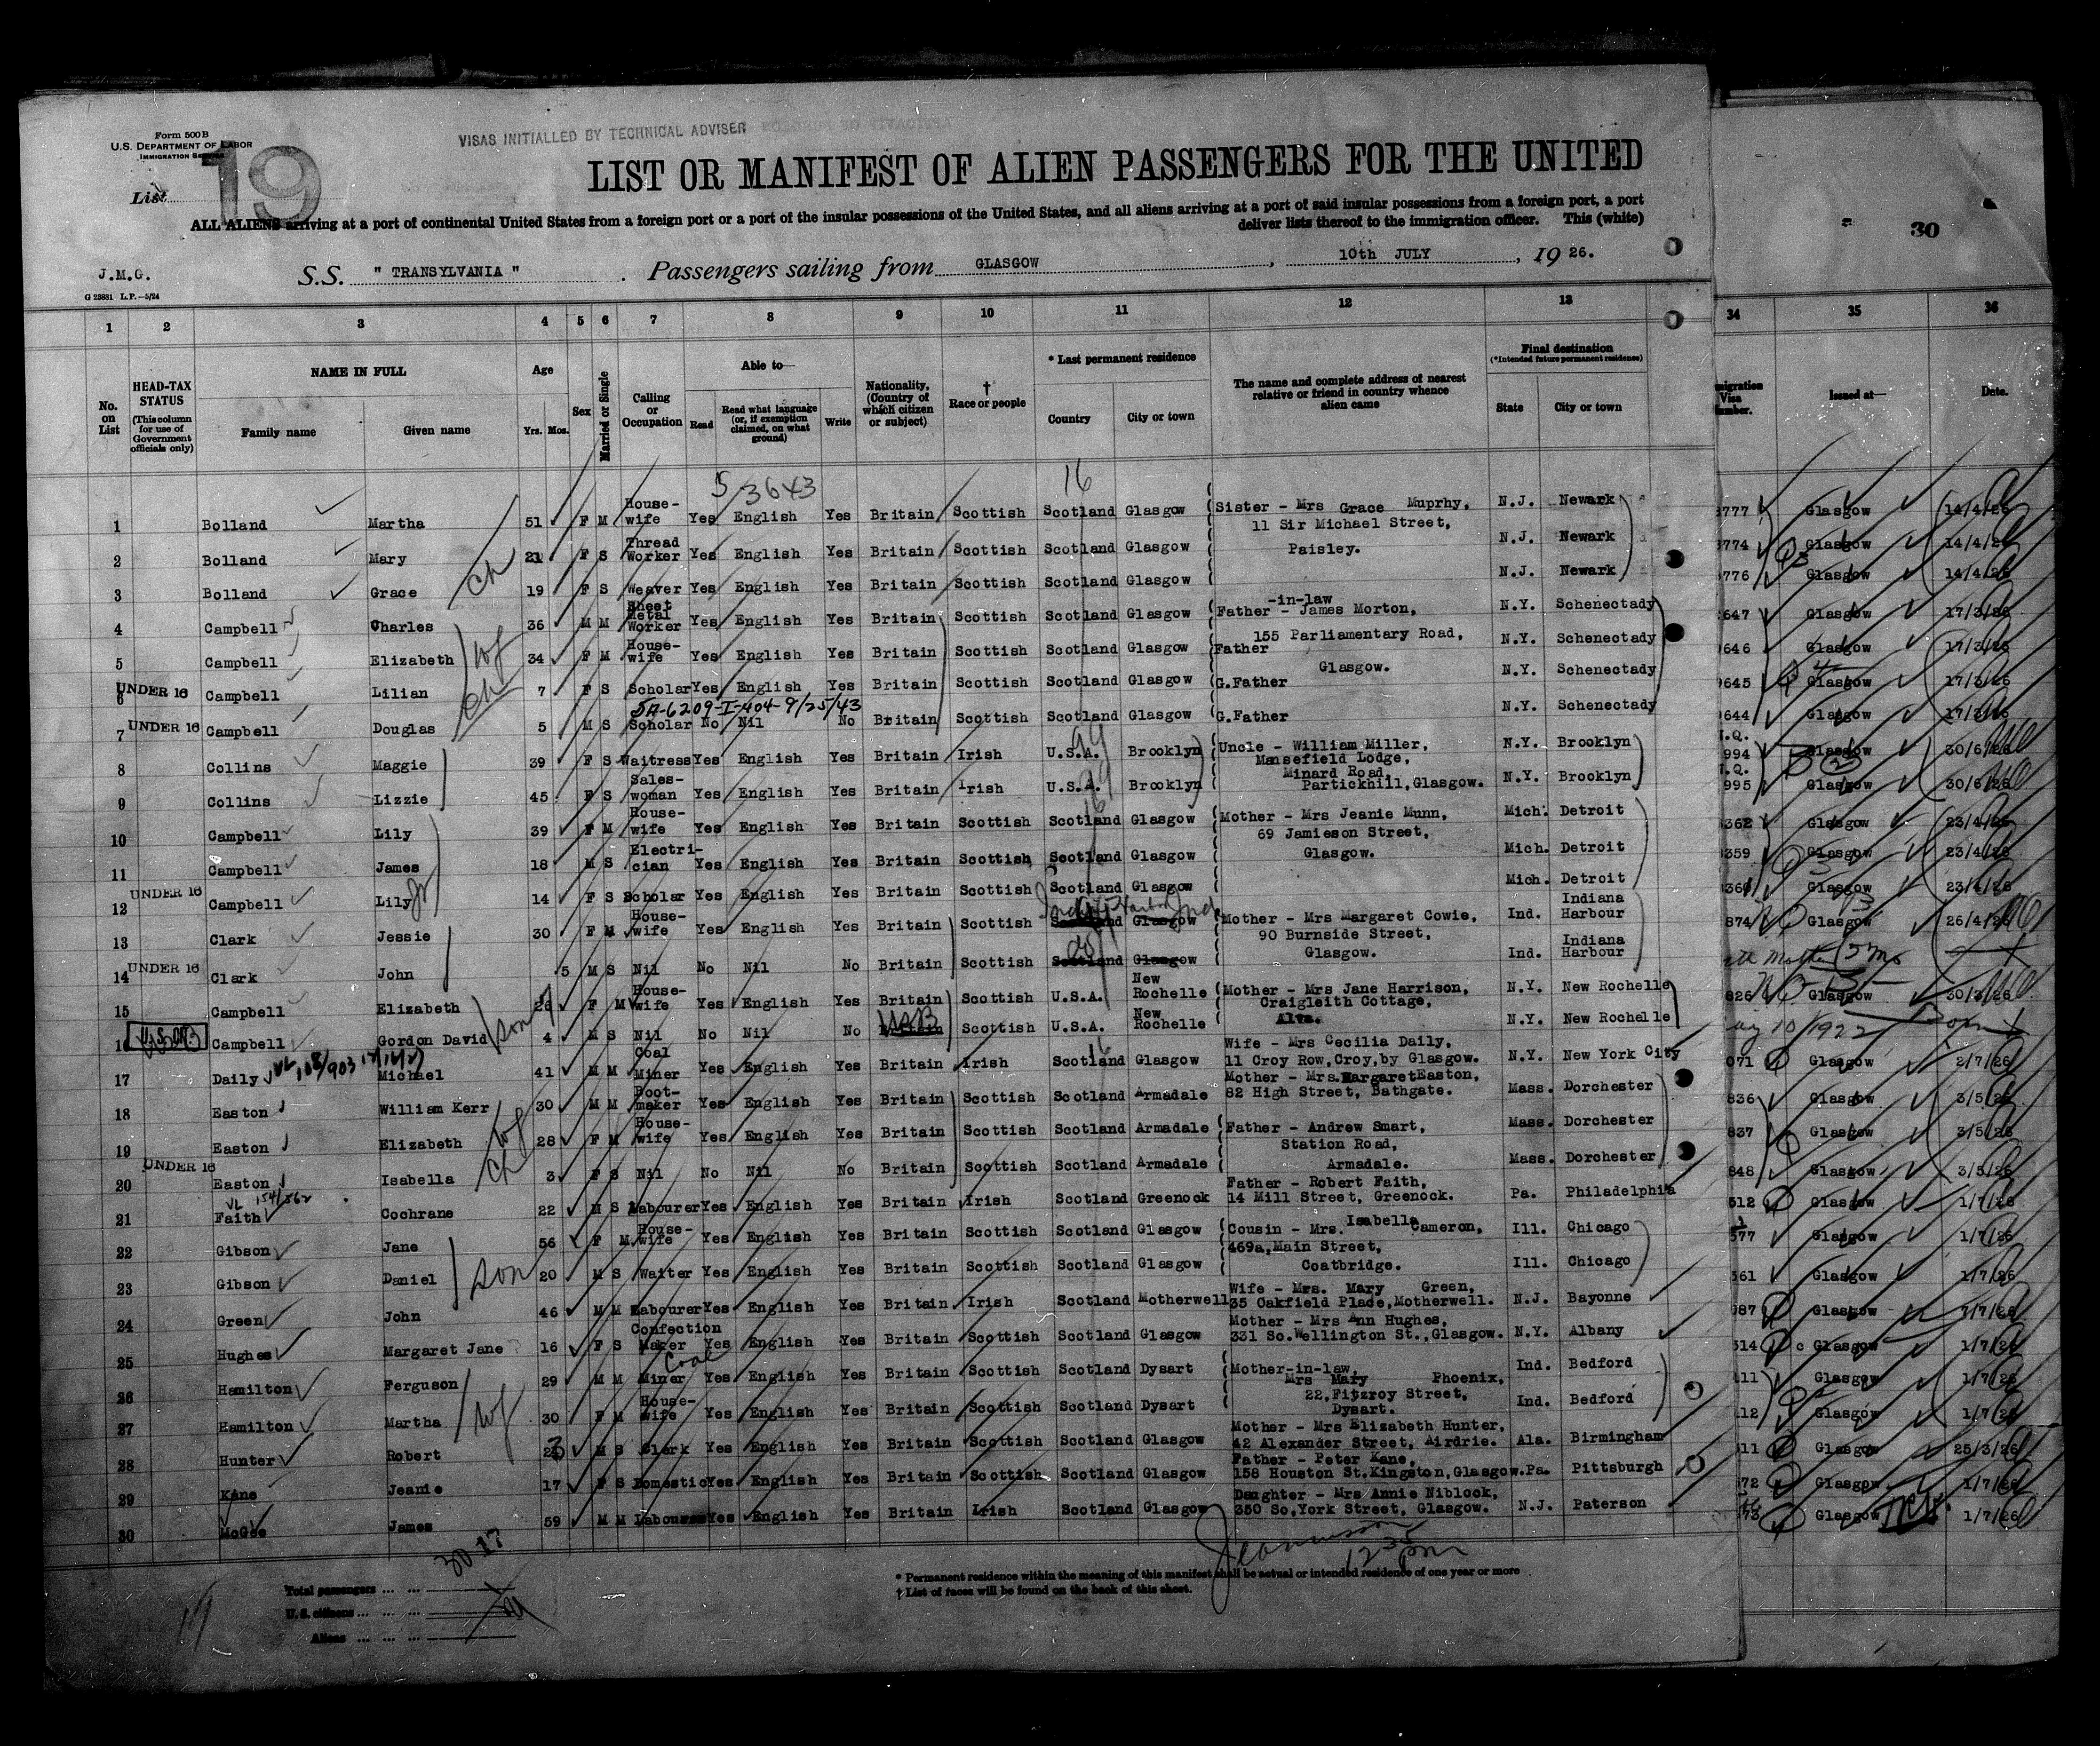 Form 500B
U.S. DEPARTMENT OF LABOR
IMMIGRATION SERVICE
VISAS INITIALLED BY TECHNICAL ADVISER
19
List
LIST OR MANIFEST OF ALIEN PASSENGERS FOR THE UNITED
ALL ALIENS arriving at a port of continental United States from a foreign port or a port of the insular possessions of the United States, and all aliens arriving at a port of said insular possessions from a foreign port, a port
deliver lists thereof to the immigration officer. This (white)
30
J.M.G.
G 23881 L.P.—5/24
S.S. " TRANSYLVANIA " . Passengers sailing from GLASGOW , 10th JULY , 19 26.
1 2 3 4 5 6 7 8 9 10 11 12 13 34 35 36
No. on List
HEAD-TAX STATUS (This column for use of Government officials only)
NAME IN FULL
Family name Given name
Age
Yrs. Mos.
Sex
Married or Single
Calling or Occupation
Able to—
Read Read what language (or, if exemption claimed, on what ground) Write
Nationality, (Country of which citizen or subject)
† Race or people
* Last permanent residence
Country City or town
The name and complete address of nearest relative or friend in country whence alien came
Final destination
(*Intended future permanent residence)
State City or town
Issued at—
Date.
5 3643 16
1 Bolland Martha 51 F M House-wife Yes English Yes Britain Scottish Scotland Glasgow Sister - Mrs Grace Muprhy, 11 Sir Michael Street, N.J. Newark 777 Glasgow 14/4/26
2 Bolland Mary 21 F S Thread Worker Yes English Yes Britain Scottish Scotland Glasgow Paisley. N.J. Newark 774 Glasgow 14/4/26
3 Bolland Grace ch 19 F S Weaver Yes English Yes Britain Scottish Scotland Glasgow N.J. Newark 776 Glasgow 14/4/26
4 Campbell Charles 36 M M Sheet Metal Worker Yes English Yes Britain Scottish Scotland Glasgow Father -in-law - James Morton, N.Y. Schenectady 647 Glasgow 17/3/26
5 Campbell Elizabeth wf 34 F M House-wife Yes English Yes Britain Scottish Scotland Glasgow Father 155 Parliamentary Road, N.Y. Schenectady 646 Glasgow 17/3/26
6 UNDER 16 Campbell Lilian ch 7 F S Scholar Yes English Yes Britain Scottish Scotland Glasgow G.Father Glasgow. N.Y. Schenectady 645 Glasgow 17/3/26
5A-6209-I-404-9/25/43
7 UNDER 16 Campbell Douglas 5 M S Scholar No Nil No Britain Scottish Scotland Glasgow G.Father N.Y. Schenectady 644 Glasgow 17/3/26
8 Collins Maggie 39 F S Waitress Yes English Yes Britain Irish U.S.A. Brooklyn Uncle - William Miller, Mansefield Lodge, N.Y. Brooklyn 994 Glasgow 30/6/26
9 Collins Lizzie 45 F S Sales-woman Yes English Yes Britain Irish U.S.A. Brooklyn Minard Road, Partickhill, Glasgow. N.Y. Brooklyn 995 Glasgow 30/6/26
10 Campbell Lily 39 F M House-wife Yes English Yes Britain Scottish Scotland Glasgow Mother - Mrs Jeanie Munn, Mich. Detroit 362 Glasgow 23/4/26
11 Campbell James 18 M S Electri-cian Yes English Yes Britain Scottish Scotland Glasgow 69 Jamieson Street, Glasgow. Mich. Detroit 359 Glasgow 23/4/26
12 UNDER 16 Campbell Lily Jr 14 F S Scholar Yes English Yes Britain Scottish Scotland Glasgow Mich. Detroit 360 Glasgow 23/4/26
13 Clark Jessie 30 F M House-wife Yes English Yes Britain Scottish Scotland Glasgow Mother - Mrs Margaret Cowie, 90 Burnside Street, Ind. Indiana Harbour 874 Glasgow 26/4/26
14 UNDER 16 Clark John 5 M S Nil No Nil No Britain Scottish Scotland Glasgow Glasgow. Ind. Indiana Harbour Mother
15 Campbell Elizabeth 26 F M House-wife Yes English Yes Britain Scottish U.S.A. New Rochelle Mother - Mrs Jane Harrison, Craigleith Cottage, N.Y. New Rochelle 826 Glasgow 30/3/26
16 U.S.CIT. Campbell Gordon David son 4 M S Nil No Nil No Britain USB Scottish U.S.A. New Rochelle Alva. N.Y. New Rochelle 10/1922
17 Daily Michael 41 M M Coal Miner Yes English Yes Britain Irish Scotland Glasgow Wife - Mrs Cecilia Daily, 11 Croy Row, Croy, by Glasgow. N.Y. New York City 071 Glasgow 2/7/26
18 Easton William Kerr 30 M M Boot-maker Yes English Yes Britain Scottish Scotland Armadale Mother - Mrs. Margaret Easton, 82 High Street, Bathgate. Mass. Dorchester 836 Glasgow 3/5/26
19 Easton Elizabeth wf 28 F M House-wife Yes English Yes Britain Scottish Scotland Armadale Father - Andrew Smart, Station Road, Mass. Dorchester 837 Glasgow 3/5/26
20 UNDER 16 Easton Isabella ch 3 F S Nil No Nil No Britain Scottish Scotland Armadale Armadale. Mass. Dorchester 848 Glasgow 3/5/26
21 Faith Cochrane 22 M S Labourer Yes English Yes Britain Irish Scotland Greenock Father - Robert Faith, 14 Mill Street, Greenock. Pa. Philadelphia 512 Glasgow 1/7/26
22 Gibson Jane 56 F M House-wife Yes English Yes Britain Scottish Scotland Glasgow Cousin - Mrs. Isabella Cameron, Ill. Chicago 577 Glasgow 1/7/26
23 Gibson Daniel son 20 M S Waiter Yes English Yes Britain Scottish Scotland Glasgow 469a, Main Street, Coatbridge. Ill. Chicago 561 Glasgow 1/7/26
24 Green John 46 M M Labourer Yes English Yes Britain Irish Scotland Motherwell Wife - Mrs. Mary Green, 35 Oakfield Place, Motherwell. N.J. Bayonne 587 Glasgow 1/7/26
25 Hughes Margaret Jane 16 F S Confection Maker Yes English Yes Britain Scottish Scotland Glasgow Mother - Mrs Ann Hughes, 331 So. Wellington St., Glasgow. N.Y. Albany 514 Glasgow 1/7/26
26 Hamilton Ferguson 29 M M Coal Miner Yes English Yes Britain Scottish Scotland Dysart Mother-in-law, Mrs Mary Phoenix, Ind. Bedford 111 Glasgow 1/7/26
27 Hamilton Martha wf 30 F M House-wife Yes English Yes Britain Scottish Scotland Dysart 22, Fitzroy Street, Dysart. Ind. Bedford 112 Glasgow 1/7/26
28 Hunter Robert M S Clerk Yes English Yes Britain Scottish Scotland Glasgow Mother - Mrs Elizabeth Hunter, 42 Alexander Street, Airdrie. Ala. Birmingham 11 Glasgow 25/3/26
29 Kane Jeanie 17 F S Domestic Yes English Yes Britain Scottish Scotland Glasgow Father - Peter Kane, 158 Houston St. Kingston, Glasgow. Pa. Pittsburgh 572 Glasgow 1/7/26
30 McGee James 59 M M Labourer Yes English Yes Britain Irish Scotland Glasgow Daughter - Mrs Annie Niblock, 350 So, York Street, Glasgow. N.J. Paterson 573 Glasgow 1/7/26
30-17
Total passengers ... ...
U.S. citizens ... ... ...
Aliens ... ... ...
* Permanent residence within the meaning of this manifest shall be actual or intended residence of one year or more
† List of races will be found on the back of this sheet.
12 pm